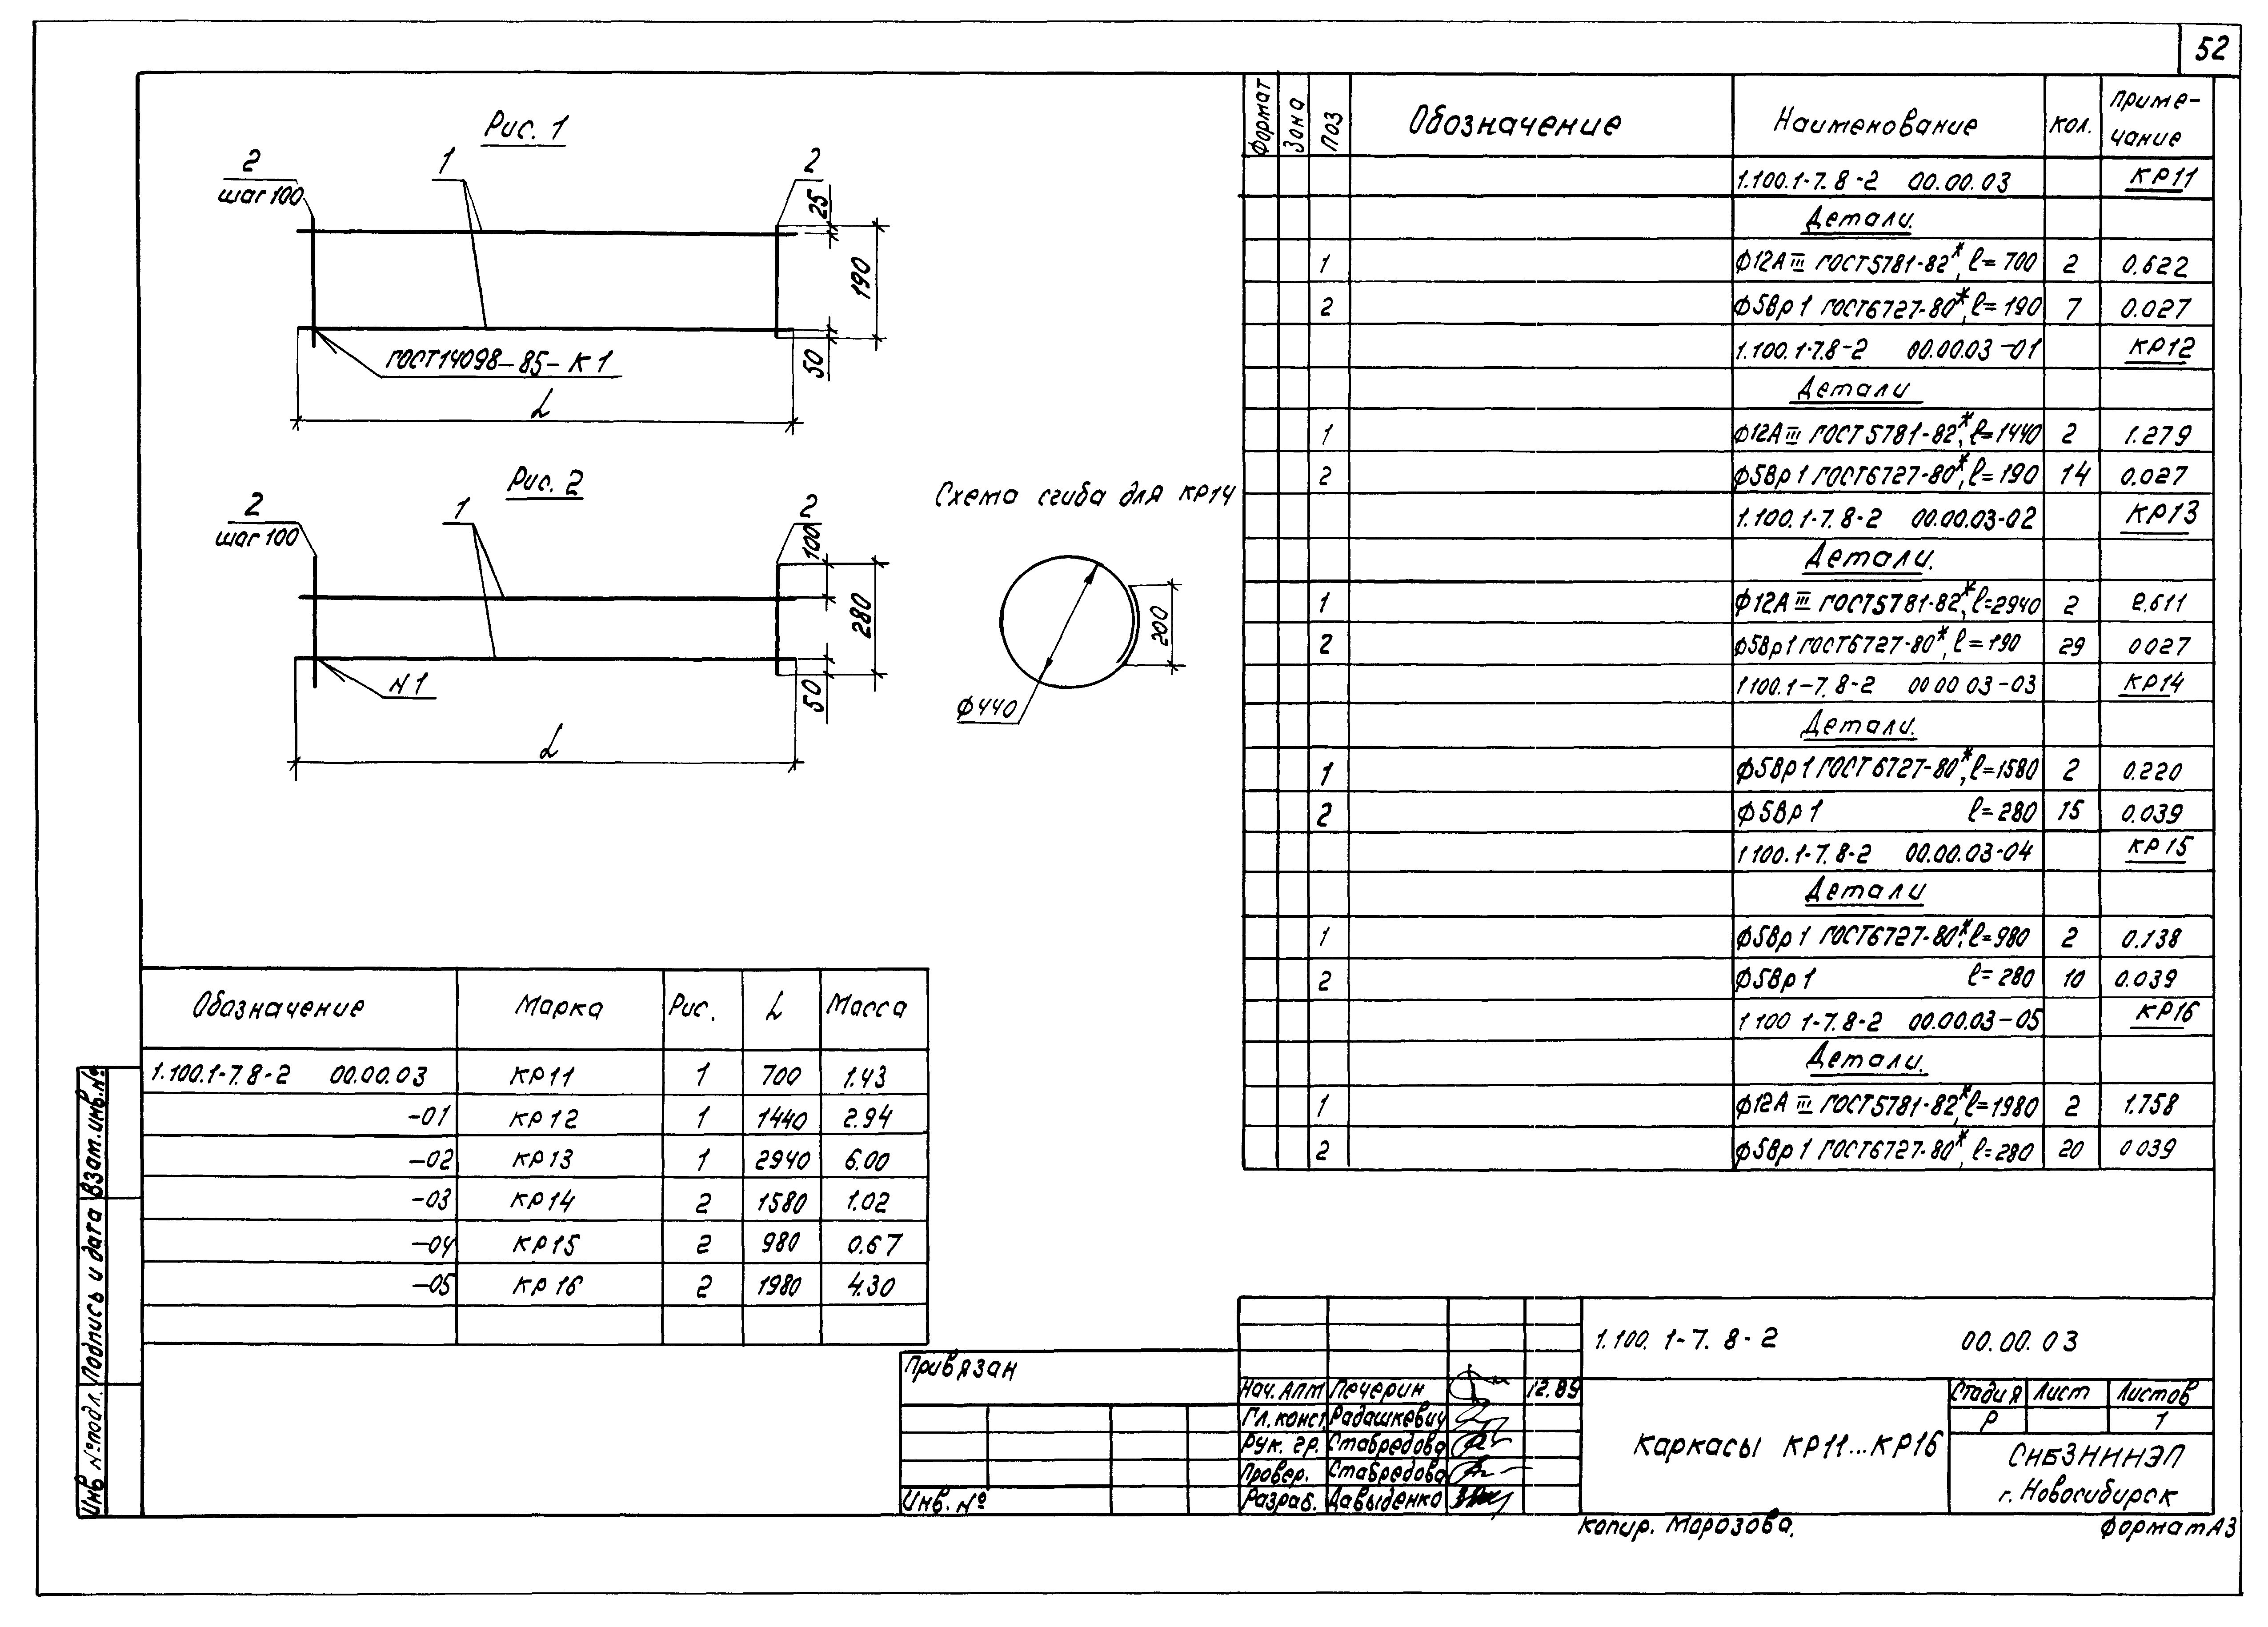 52
Рис. 1
2
шаг 100
1
2
25
190
50
ГОСТ14098-85-К1
L
Рис. 2
2
шаг 100
1
2
100
280
50
N1
L
Схема сгиба для КР14
200
ф440
Формат Зона Поз Обозначение Наименование Кол. Приме-
чание
1.100.1-7.8-2 00.00.03 КР11
Детали.
1 ф12АIII ГОСТ5781-82*, l=700 2 0.622
2 ф5Вр1 ГОСТ6727-80*, l=190 7 0.027
1.100.1-7.8-2 00.00.03-01 КР12
Детали
1 ф12АIII ГОСТ5781-82*, l=1440 2 1.279
2 ф5Вр1 ГОСТ6727-80*, l=190 14 0.027
1.100.1-7.8-2 00.00.03-02 КР13
Детали.
1 ф12АIII ГОСТ5781-82*, l=2940 2 2.611
2 ф5Вр1 ГОСТ6727-80*, l=190 29 0027
1100.1-7.8-2 00 00 03-03 КР14
Детали.
1 ф5Вр1 ГОСТ6727-80*, l=1580 2 0.220
2 ф5Вр1 l=280 15 0.039
1100.1-7.8-2 00.00.03-04 КР15
Детали
1 ф5Вр1 ГОСТ6727-80*, l=980 2 0.138
2 ф5Вр1 l=280 10 0.039
1100 1-7.8-2 00.00.03-05 КР16
Детали.
1 ф12А III ГОСТ5781-82*, l=1980 2 1.758
2 ф5Вр1 ГОСТ6727-80*, l=280 20 0039
Обозначение Марка Рис. L Масса
1.100.1-7.8-2 00.00.03 КР11 1 700 1.43
-01 КР12 1 1440 2.94
-02 КР13 1 2940 6.00
-03 КР14 2 1580 1.02
-04 КР15 2 980 0.67
-05 КР16 2 1980 4.30
Инв № подл. Подпись и дата Взам.инв.№
Привязан
Инв. №
Нач. АПМ Печерин 12.89
Гл. конст. Радашкевич
Рук. гр. Стабредова
Провер. Стабредова
Разраб. Давыденко
1.100.1-7.8-2 00.00.03
Каркасы КР11...КР16
Стадия Лист Листов
Р 1
СИБЗНИИЭП
г. Новосибирск
Копир. Морозова.
Формат А3